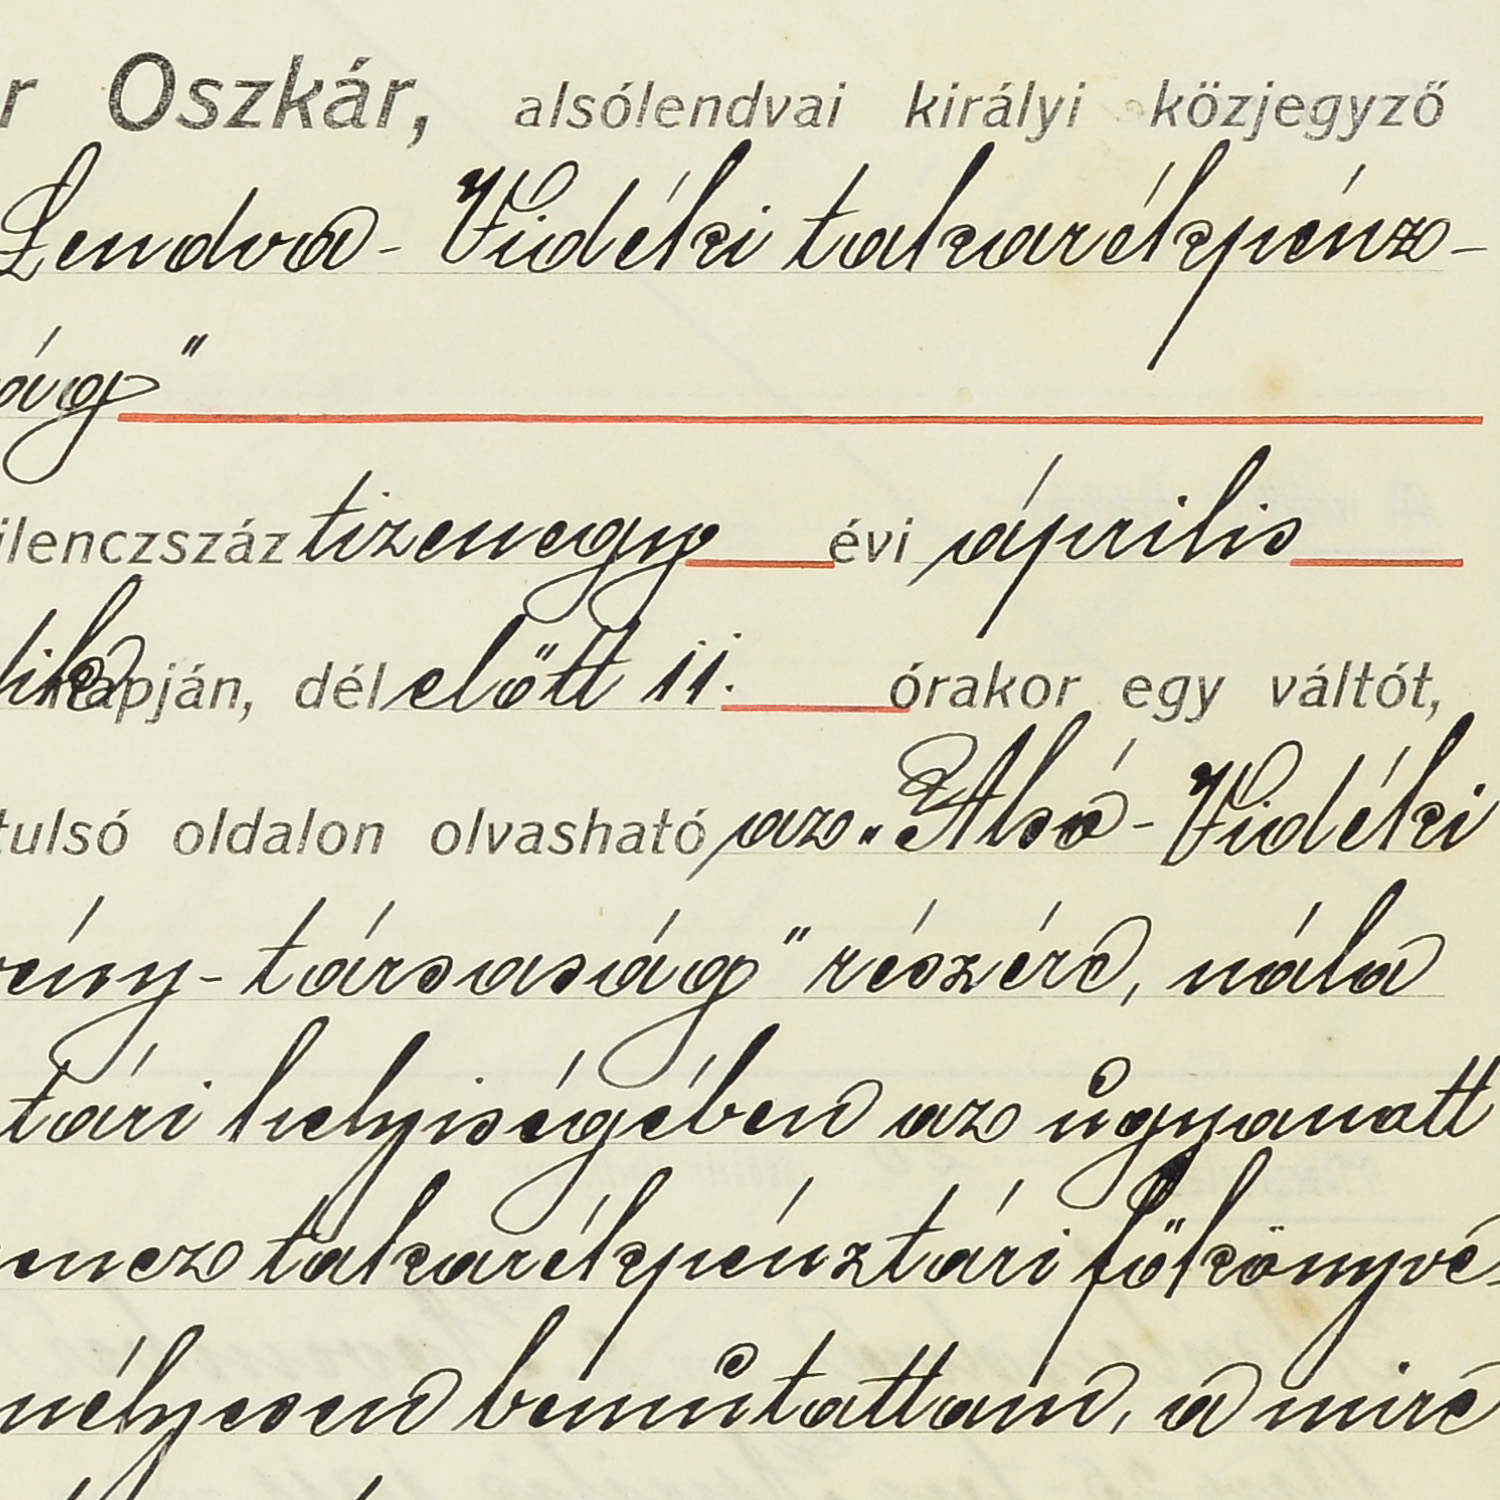 r Oszkár, alsólendvai királyi közjegyző
Lendva-Vidéki takarékpénz-
ág"
ilenczszáz tizenegy évi április
dike napján, dél előtt 11. órakor egy váltót,
tulsó oldalon olvasható az „Alsó-Vidéki
vény-társaság" részére, nála
tári helyiségében az ugyanott
encz takarékpénztári főkönyvé-
mélyesen bemutattam, a mire